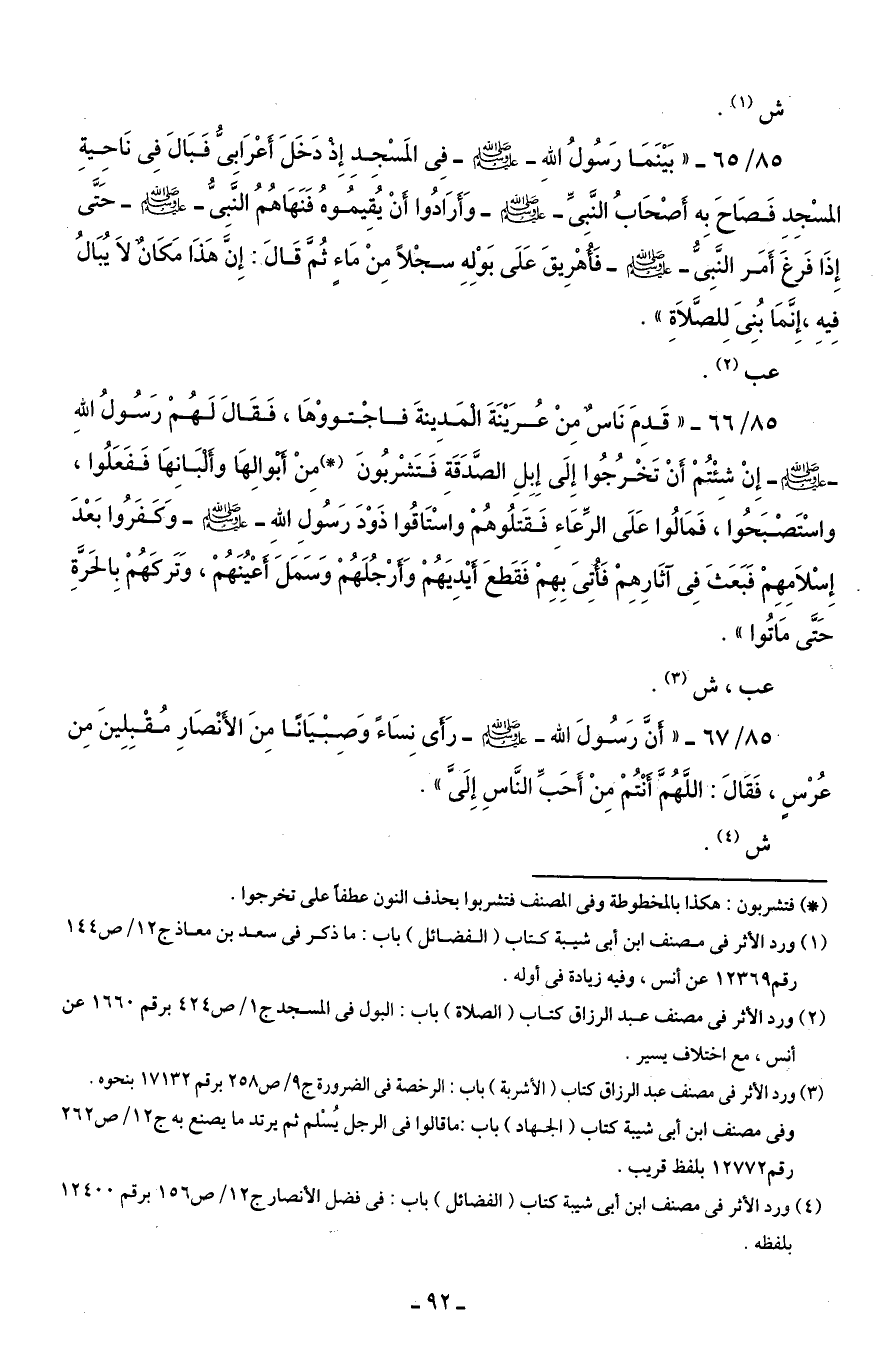 ش (١) .
٦٥/٨٥ ـ « بَيْنَمَا رَسُولُ الله ـ ﷺ ـ فِى المَسْجِدِ إِذْ دَخَلَ أَعْرَابِىٌّ فَبَالَ فِى نَاحِيةِ
المسْجِدِ فَصَاحَ بِه أَصْحَابُ النَّبِىِّ ـ ﷺ ـ وَأَرَادُوا أَنْ يُقِيمُوهُ فَنَهَاهُمُ النَّبِىُّ ـ ﷺ ـ حَتَّى
إِذَا فَرِغَ أَمَر النَّبِىُّ ـ ﷺ ـ فَأُهْرِيقَ عَلَى بَوْلِهِ سجْلاً مِنْ مَاءٍ ثُمَّ قَالَ : إِنَّ هَذَا مَكَانٌ لاَ يُبَالُ
فِيهِ ،إِنَّمَا بُنِىَ لِلصَّلاَةِ » .
عب (٢) .
٦٦/٨٥ ـ « قَدِمَ نَاسٌ مِنْ عُرَيْنَةَ الْمَدِينةَ فاجْتووْهَا ، فَقَالَ لَهُمْ رَسُولُ الله
ـ ﷺ ـ إِنْ شِئْتُمْ أَنْ تَخْرُجُوا إِلَى إِبِلِ الصَّدَقَةِ فَتَشْرِبُونَ (*)مِنْ أَبْوالِهَا وأَلْبَانِهَا فَفَعَلُوا ،
واسْتَصْبَحُوا ، فَمَالُوا عَلَى الرِّعَاءِ فَقَتلُوهُمْ واسْتَاقُوا ذَوْدَ رَسُولِ الله ـ ﷺ ـ وَكَفَرُوا بَعْدَ
إِسْلاَمِهِمْ فَبَعَثَ فِى آثَارِهِمْ فَأُتِىَ بِهِمْ فَقَطعَ أَيْدِيَهُمْ وَأَرْجُلَهُمْ وَسَمَلَ أَعْيُنَهُمْ ، وَتَركَهُمْ بِالحَرَّةِ
حَتَّى مَاتُوا » .
عب ، ش (٣) .
٦٧/٨٥ ـ « أَنَّ رَسُولَ الله ـ ﷺ ـ رَأَى نِسَاءً وَصِبْيَانًا مِنَ الأَنْصَارِ مُقْبِلِينَ مِن
عُرْسٍ ، فَقَالَ : اللَّهُمَّ أَنْتُمْ مِنْ أَحَبِّ النَّاسِ إِلَىَّ » .
ش (٤) .
(*) فتشربون : هكذا بالمخطوطة وفى المصنف فتشربوا بحذف النون عطفاً على تخرجوا .
(١) ورد الأثر فى مصنف ابن أبى شيبة كتاب ( الفضائل ) باب : ما ذكر فى سعد بن معاذ ج١٢/ ص١٤٤
رقم١٢٣٦٩ عن أنس ، وفيه زيادة فى أوله .
(٢) ورد الأثر فى مصنف عبد الرزاق كتاب ( الصلاة ) باب : البول فى المسجد ج١/ ص٤٢٤ برقم ١٦٦٠ عن
أنس ، مع اختلاف يسير .
(٣) ورد الأثر فى مصنف عبد الرزاق كتاب ( الأشربة ) باب : الرخصة فى الضرورة ج٩/ ص٢٥٨ برقم ١٧١٣٢ بنحوه .
وفى مصنف ابن أبى شيبة كتاب ( الجهاد ) باب :ماقالوا فى الرجل يُسْلم ثم يرتد ما يصنع به ج١٢/ ص٢٦٢
رقم١٢٧٧٢ بلفظ قريب .
(٤) ورد الأثر فى مصنف ابن أبى شيبة كتاب ( الفضائل ) باب : فى فضل الأنصار ج١٢/ ص١٥٦ برقم ١٢٤٠٠
بلفظه .
ـ ٩٢ ـ